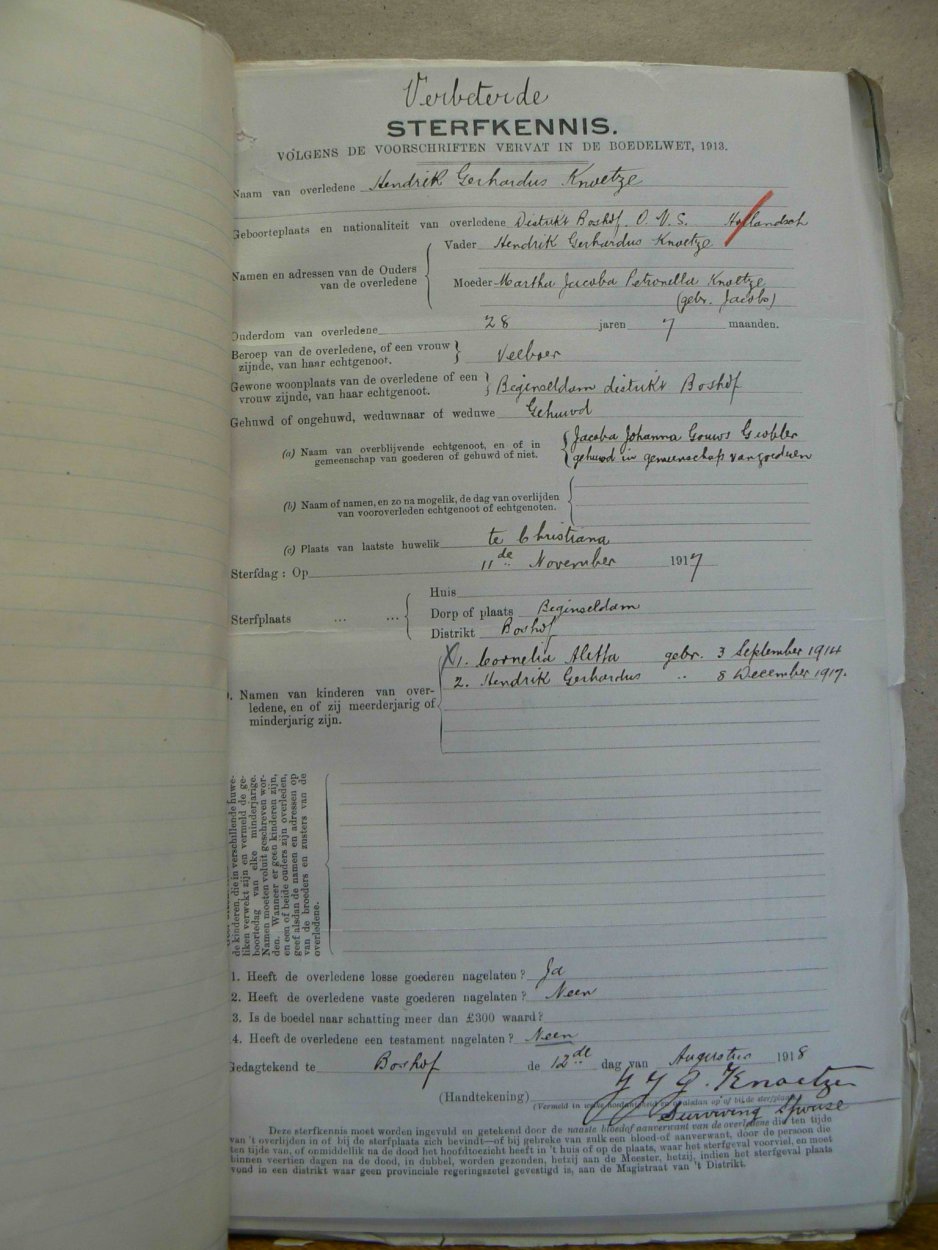 Verbeterde
STERFKENNIS.
VOLGENS DE VOORSCHRIFTEN VERVAT IN DE BOEDELWET, 1913.
Naam van overledene Hendrik Gerhardus Knoetze
Geboorteplaats en nationaliteit van overledene Distrikt Boshof. O. V. S. Hollandsch
Namen en adressen van de Ouders van de overledene
Vader Hendrik Gerhardus Knoetze
Moeder Martha Jacoba Petronella Knoetze
(gebr. Jacobs)
Ouderdom van overledene 28 jaren 7 maanden.
Beroep van de overledene, of een vrouw
zijnde, van haar echtgenoot. Veeboer
Gewone woonplaats van de overledene of een
vrouw zijnde, van haar echtgenoot. Beginseldam distrikt Boshof
Gehuwd of ongehuwd, weduwnaar of weduwe Gehuwd
(a) Naam van overblijvende echtgenoot, en of in
gemeenschap van goederen of gehuwd of niet.
Jacoba Johanna Gouws Grobler
gehuwd in gemeenschap van goederen
(b) Naam of namen, en zo na mogelik, de dag van overlijden
van vooroverleden echtgenoot of echtgenoten.
(c) Plaats van laatste huwelik te Christiana
Sterfdag: Op 11de November 1917
Sterfplaats ... ...
Huis
Dorp of plaats Beginseldam
Distrikt Boshof
Namen van kinderen van over-
ledene, en of zij meerderjarig of
minderjarig zijn.
X 1. Cornelia Aletta gebr. 3 September 1914
2. Hendrik Gerhardus „ 8 December 1917.
de kinderen, die in verschillende huwe-
liken verwekt zijn en vermeld de ge-
boortedag van elke minderjarige.
Namen moeten voluit geschreven wor-
den. Wanneer er geen kinderen zijn,
en een of beide ouders zijn overleden,
geef alsdan de namen en adressen op
van de broeders en zusters van de
overledene.
1. Heeft de overledene losse goederen nagelaten? Ja
2. Heeft de overledene vaste goederen nagelaten? Neen
3. Is de boedel naar schatting meer dan £300 waard?
4. Heeft de overledene een testament nagelaten? Neen
Gedagtekend te Boshof de 12de dag van Augustus 1918
(Handtekening) J J G. Knoetze
(Vermeld in welke hoedanigheid en of alsdan op of bij de sterfplaats
Surviving Spouse
Deze sterfkennis moet worden ingevuld en getekend door de naaste bloedof aanverwant van de overledene die ten tijde
van 't overlijden in of bij de sterfplaats zich bevindt—of bij gebreke van zulk een bloed-of aanverwant, door de persoon die
ten tijde van, of onmiddellik na de dood het hoofdtoezicht heeft in 't huis of op de plaats, waar het sterfgeval voorviel, en moet
binnen veertien dagen na de dood, in dubbel, worden gezonden, hetzij aan de Meester, hetzij, indien het sterfgeval plaats
vond in een distrikt waar geen provinciale regeringszetel gevestigd is, aan de Magistraat van 't Distrikt.